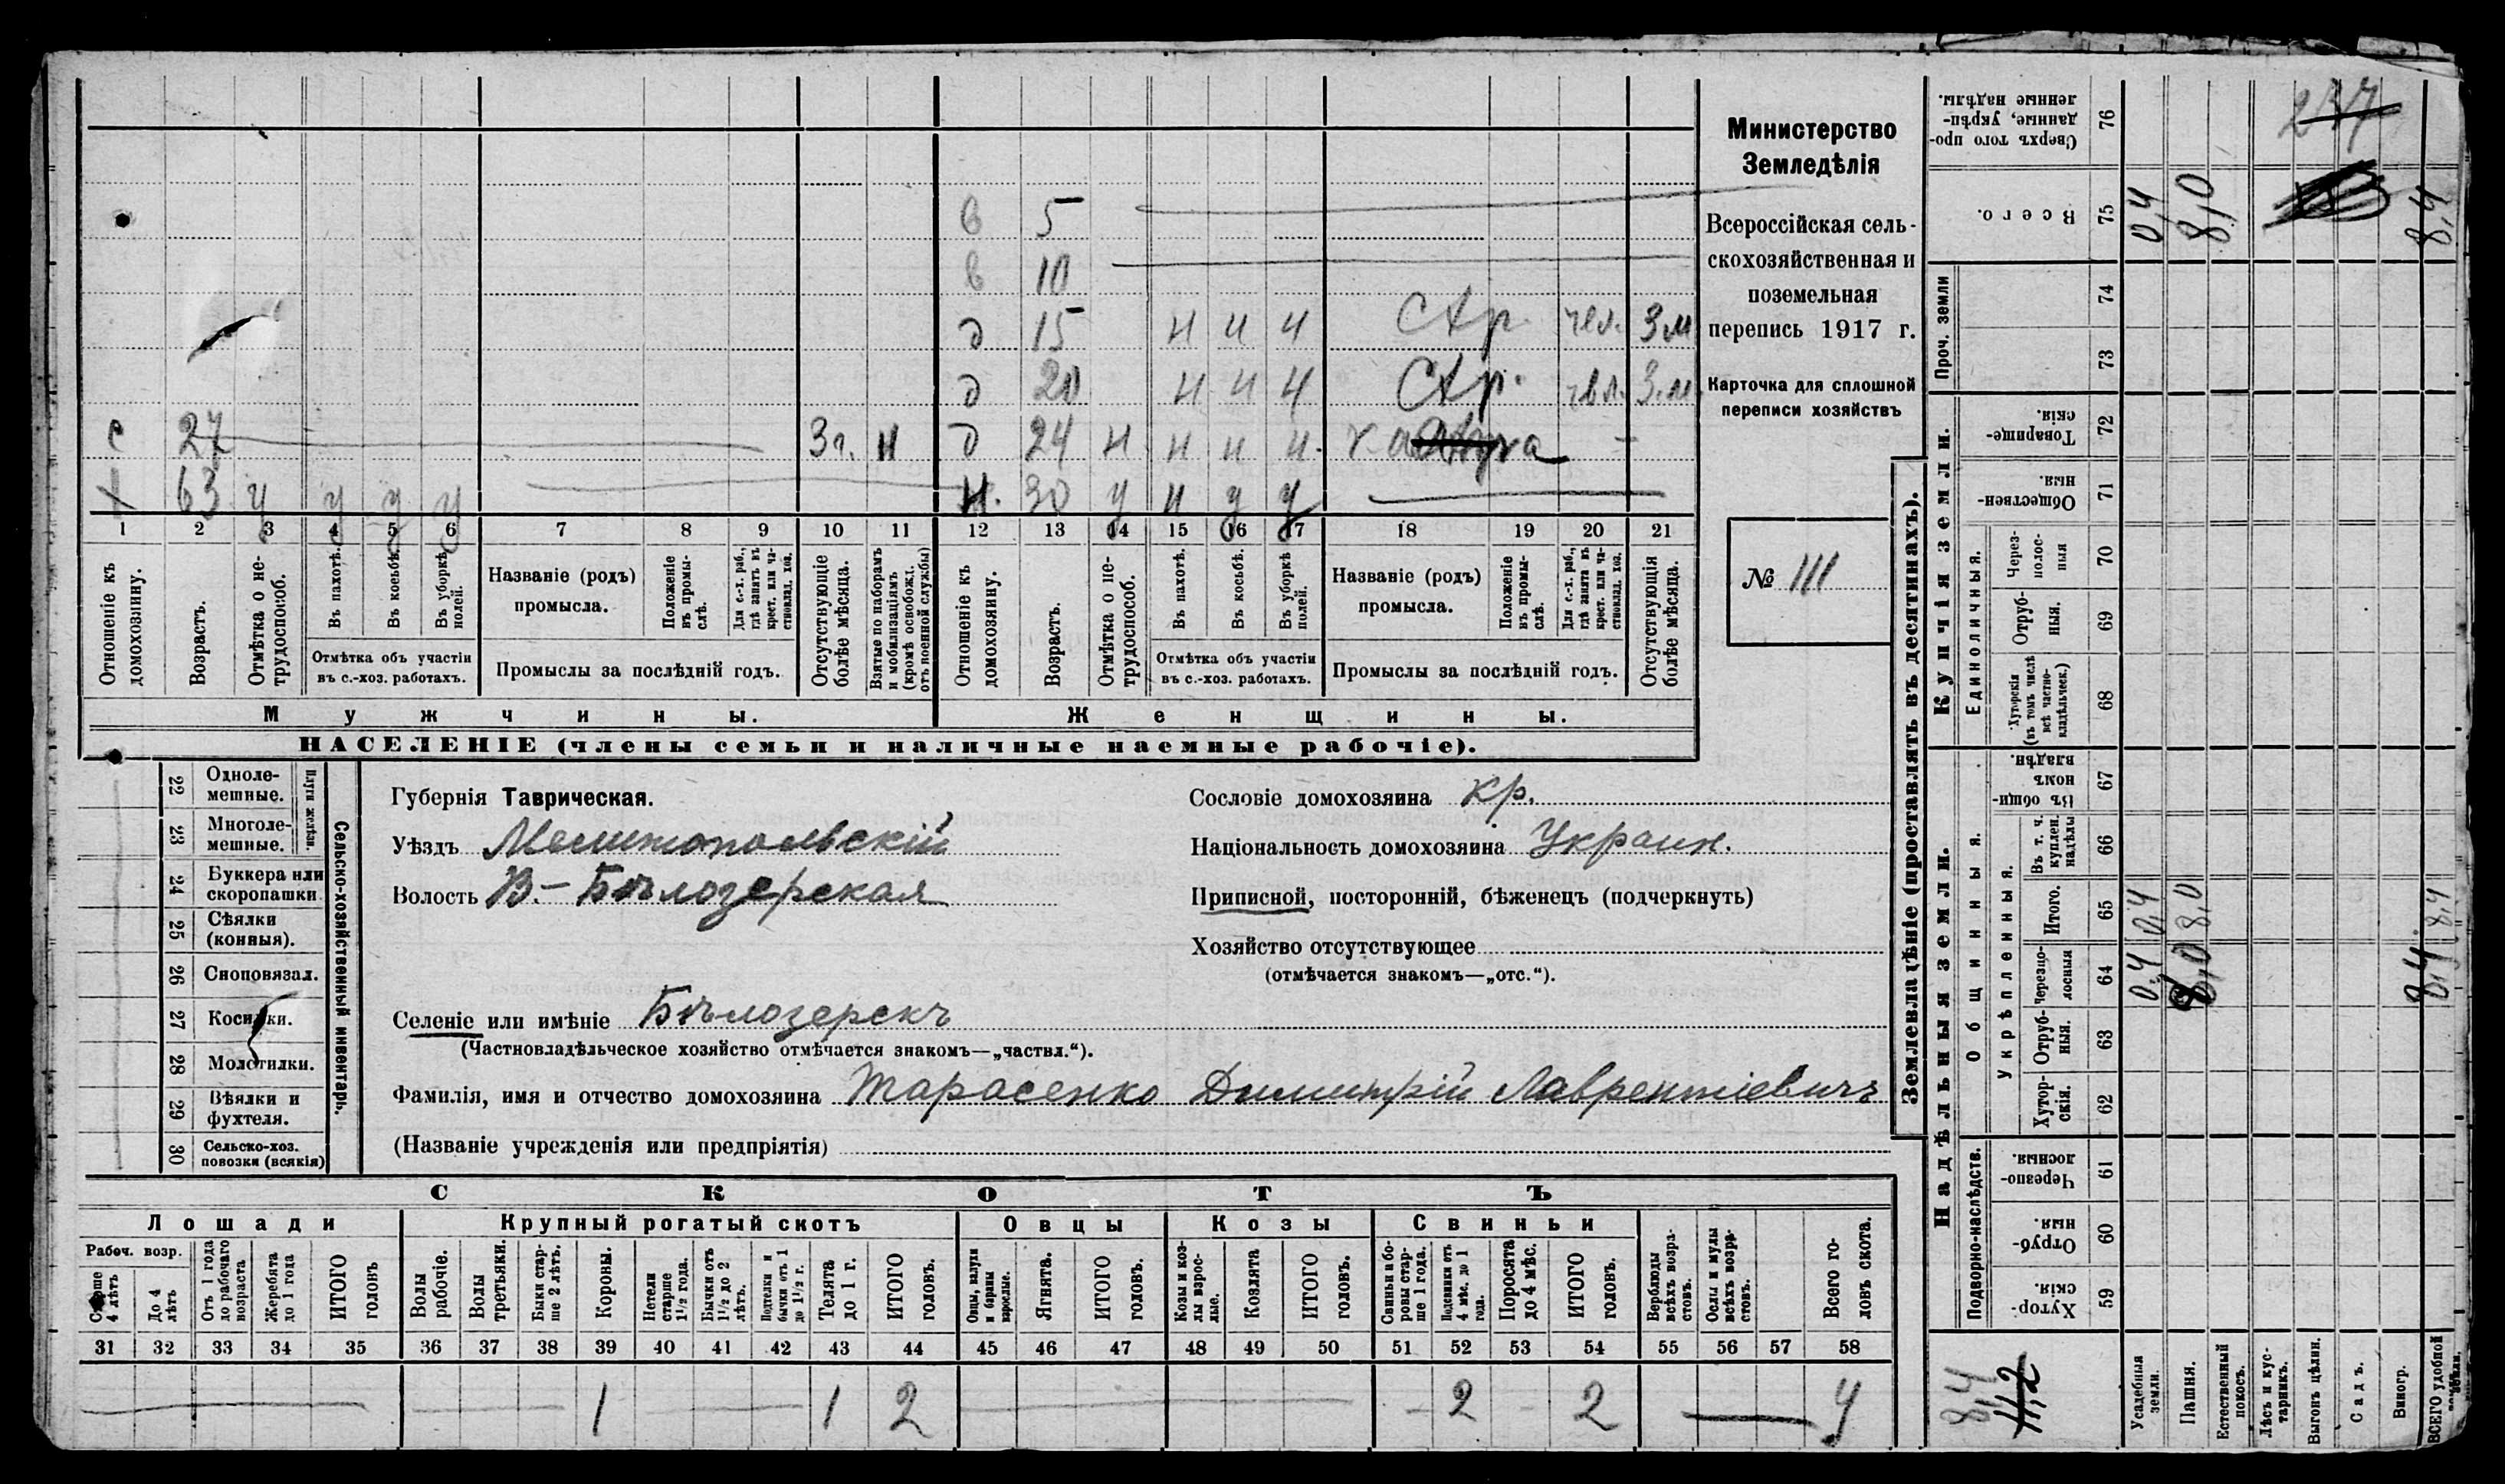 Министерство
Земледѣлія
Всероссійская сель-
скохозяйственная и
поземельная
перепись 1917 г.
Карточка для сплошной
переписи хозяйствъ
№ 111
в 5
в 10
д 15 н и ч Стр. чел. 3 м
д 20 н и ч Стр. чел. 3 м.
с 27 3 г. н д 24 н н и и
1 63 у у у у н. 30 у н у у
1 2 3 4 5 6 7 8 9 10 11 12 13 14 15 16 17 18 19 20 21
Отношеніе къ домохозяину.
Возрастъ.
Отмѣтка о не-трудоспособ.
Въ пахотѣ.
Въ косьбѣ.
Въ уборкѣ полей.
Отмѣтка объ участіи
въ с.-хоз. работахъ.
Названіе (родъ)
промысла.
Положеніе въ промы-слѣ.
Для с.-х. раб., гдѣ занятъ въ крест. или ча-стновлад. хоз.
Промыслы за послѣдній годъ.
Отсутствующіе болѣе мѣсяца.
Взятые по наборамъ и мобилизаціямъ (кромѣ освобожд. отъ военной службы)
Отношеніе къ домохозяину.
Возрастъ.
Отмѣтка о не-трудоспособ.
Въ пахотѣ.
Въ косьбѣ.
Въ уборкѣ полей.
Отмѣтка объ участіи
въ с.-хоз. работахъ.
Названіе (родъ)
промысла.
Положеніе въ промы-слѣ.
Для с.-х. раб., гдѣ занята въ крест. или ча-стновлад. хоз.
Промыслы за послѣдній годъ.
Отсутствующія болѣе мѣсяца.
Мужчины.
Женщины.
НАСЕЛЕНІЕ (члены семьи и наличные наемные рабочіе).
Сельско-хозяйственный инвентарь.
Плуги желѣзн.
22 Однолемешные.
23 Многоле-мешные.
24 Буккера или скоропашки
25 Сѣялки (конныя).
26 Сноповязал.
27 Косилки.
28 Молотилки.
29 Вѣялки и фухтеля.
30 Сельско-хоз. повозки (всякія)
Губернія Таврическая.
Уѣздъ Мелитопольскій
Волость В.-Бѣлозерская
Сословіе домохозяина кр.
Національность домохозяина Украин.
Приписной, посторонній, бѣженецъ (подчеркнуть)
Хозяйство отсутствующее
(отмѣчается знакомъ—„отс.“).
Селеніе или имѣніе Бѣлозерскъ
(Частновладѣльческое хозяйство отмѣчается знакомъ—„частвл.“).
Фамилія, имя и отчество домохозяина Тарасенко Димитрій Лаврентіевичъ
(Названіе учрежденія или предпріятія)
СКОТЪ
Лошади
Крупный рогатый скотъ
Овцы
Козы
Свиньи
Рабоч. возр.
Старше 4 лѣтъ
До 4 лѣтъ
Отъ 1 года до рабочаго возраста
Жеребята до 1 года
ИТОГО головъ
Волы рабочіе.
Волы третьяки.
Быки стар-ше 2 лѣтъ.
Коровы.
Нетели старше 1½ года.
Бычки отъ 1½ до 2 лѣтъ.
Подтелки и бычки отъ 1 до 1½ г.
Телята до 1 г.
ИТОГО головъ.
Овцы, валухи и бараны взрослые.
Ягнята.
ИТОГО головъ.
Козы и коз-лы взрос-лые.
Козлята
ИТОГО головъ.
Свиньи и бо-ровы стар-ше 1 года.
Подсвинки отъ 4 мѣс. до 1 года.
Поросята до 4 мѣс.
ИТОГО головъ.
Верблюды всѣхъ возра-стовъ.
Ослы и мулы всѣхъ возра-стовъ.
Всего го-ловъ скота.
31 32 33 34 35 36 37 38 39 40 41 42 43 44 45 46 47 48 49 50 51 52 53 54 55 56 57 58
1 1 2 2 2 4
Землевладѣніе (проставлять въ десятинахъ).
Купчія земли.
Надѣльныя земли.
Проч. земли
Единоличныя.
Общинныя.
Укрѣпленныя.
Подворно-наслѣдств.
76 Сверхъ того про-данные, укрѣп-ленные надѣлы.
75 Всего. 0,4 8,0 8,4
74
73
72 Товарище-скія.
71 Обществен-ныя.
70 Через-полос-ныя
69 Отруб-ныя.
68 Хуторскія (въ томъ числѣ всѣ частно-владѣльческ.)
67 Въ общи-номъ владѣн.
66 Въ т. ч. куплен. надѣлы
65 Итого. 0,4 8,0 8,4
64 Черезпо-лосныя 0,4 8,0 8,4
63 Отруб-ныя.
62 Хутор-скія.
61 Черезпо-лосныя.
60 Отруб-ныя.
59 Хутор-скія.
8,4
11,2
Усадебныя земли.
Пашня.
Естественный покосъ.
Лѣсъ и кус-тарникъ.
Выгонъ цѣлин.
Садъ.
Виногр.
ВСЕГО удобной земли.
237